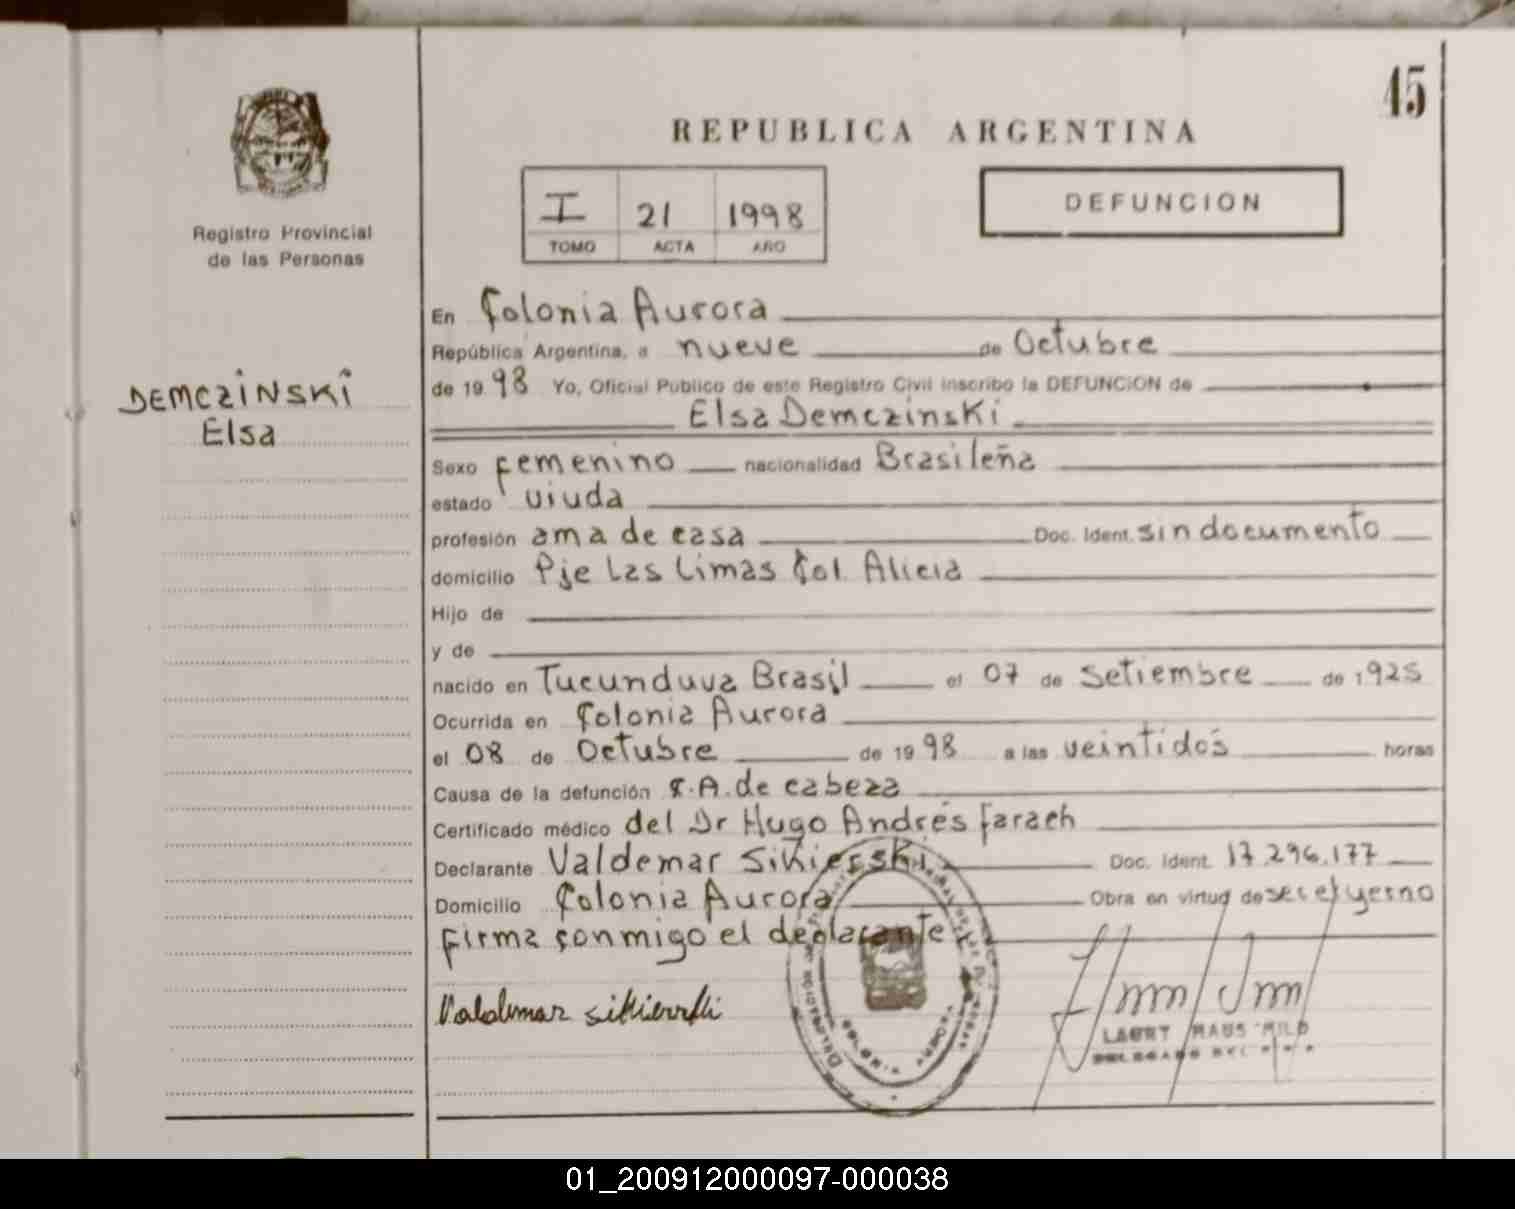 45
REPUBLICA ARGENTINA
Registro Provincial
de las Personas
I 21 1998
TOMO ACTA AÑO
DEFUNCION
DEMCZINSKI
Elsa
En Colonia Aurora
República Argentina, a nueve de Octubre
de 19 98 Yo, Oficial Público de este Registro Civil inscribo la DEFUNCION de
Elsa Demczinski
Sexo femenino nacionalidad Brasileña
estado viuda
profesión ama de casa Doc. Ident. sin documento
domicilio Pje Las Limas Col. Alicia
Hijo de
y de
nacido en Tucunduva Brasil el 07 de Setiembre de 1925
Ocurrida en Colonia Aurora
el 08 de Octubre de 19 98 a las veintidós horas
Causa de la defunción C.A. de cabeza
Certificado médico del Dr Hugo Andrés Farach
Declarante Valdemar Sikierski Doc. Ident. 17.296.177
Domicilio Colonia Aurora Obra en virtud de ser el yerno
Firma conmigo el declarante
Valdemar sikierski
01_200912000097-000038